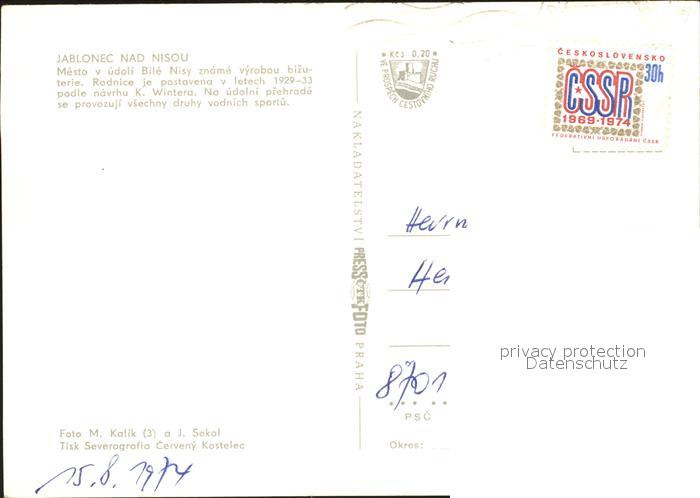 JABLONEC NAD NISOU
Město v údolí Bílé Nisy známé výrobou bižu-
terie. Radnice je postavena v letech 1929–33
podle návrhu K. Wintera. Na údolní přehradě
se provozují všechny druhy vodních sportů.
Kčs 0,20
VE PROSPĚCH CESTOVNÍHO RUCHU
ČESKOSLOVENSKO
30h
ČSSR
1969·1974
FEDERATIVNÍ USPOŘÁDÁNÍ ČSSR
NAKLADATELSTVÍ PRESSFOTO PRAHA
ČTK
Herrn
Her
8701
PSČ
Okres:
privacy protection
Datenschutz
Foto M. Kalík (3) a J. Sekal
Tisk Severografia Červený Kostelec
15.8.1974